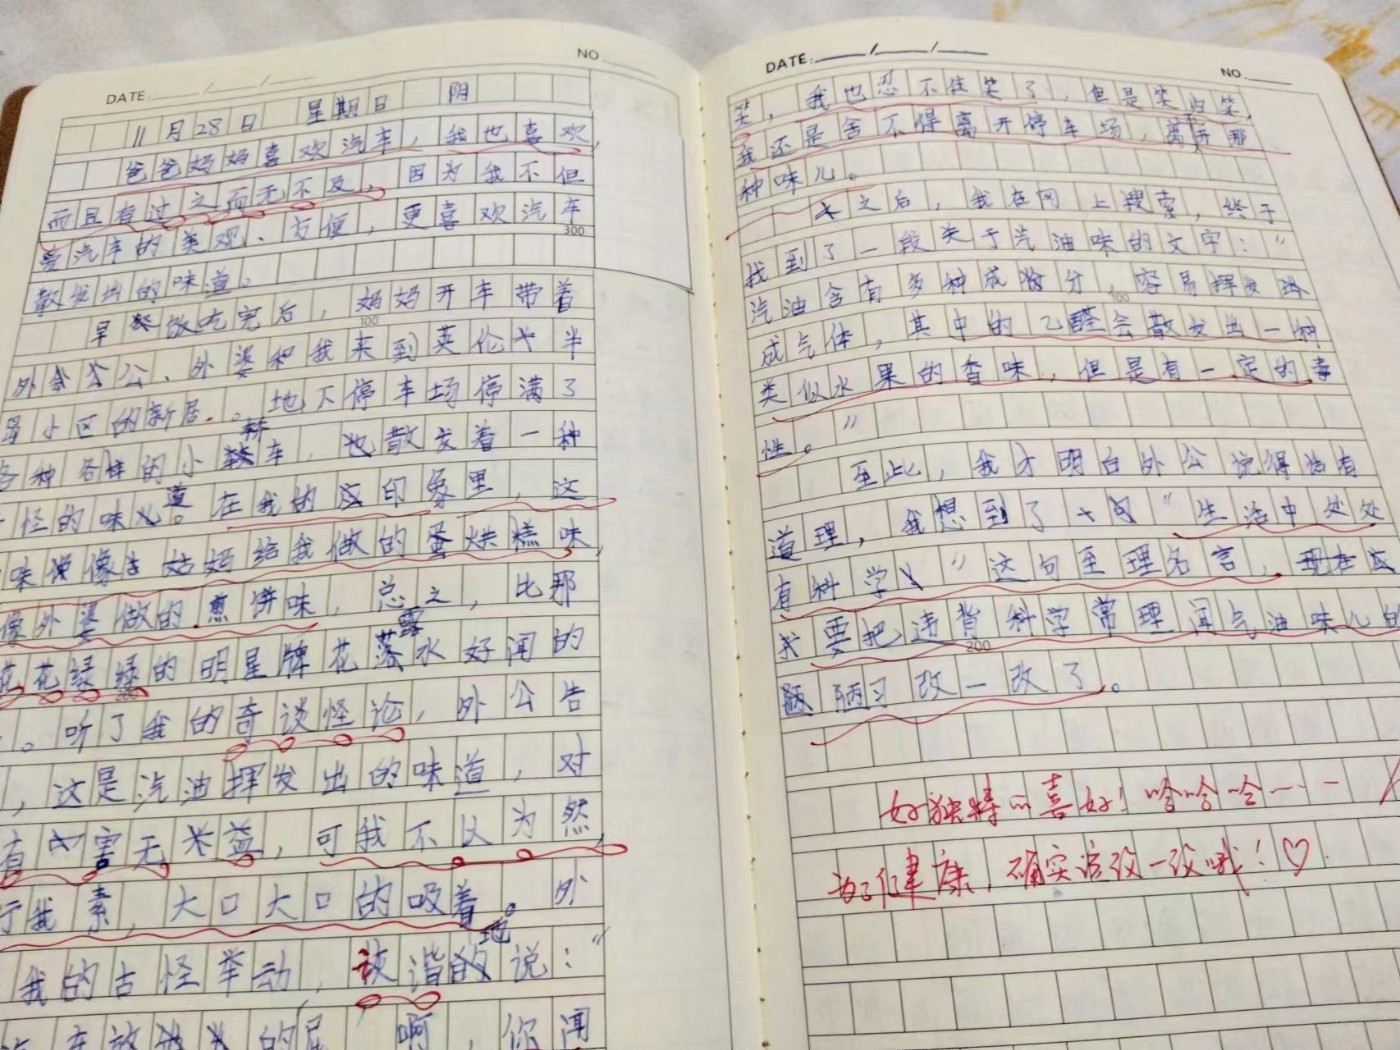 DATE:
NO
11月28日 星期日 阴
爸爸妈妈喜欢汽车，我也喜欢，
而且有过之而无不及，因为我不但
爱汽车的美观、方便，更喜欢汽车
300
散发出的味道。
早饭吃完后，妈妈开车带着
100
外公、外婆和我来到英伦半
小区的新居。地下停车场停满了
各种各样的小轿车，也散发着一种
怪的味道。在我的印象里，这
味像妈妈给我做的蛋烘糕味，
像外婆做的煎饼味，总之，比那
花花绿绿的明星牌花露水好闻的
。听了我的奇谈怪论，外公告
，这是汽油挥发出的味道，对
有害无益，可我不以为然
行我素，大口大口的吸着。外
我的古怪举动，诙谐地说：“
车放的尾 啊，你闻
DATE:
NO.
笑，我也忍不住笑了，但是笑归笑，
我还是舍不得离开停车场，离开那
种味儿。
之后，我在网上搜索，终于
找到了一段关于汽油味的文字：“
汽油含有多种成分，容易挥发
100
成气体，其中的乙醛会散发出一种
类似水果的香味，但是有一定的毒
性。”
至此，我才明白外公说得有
道理，我想到了“生活中处处
有科学”这句至理名言，现在应
我要把违背科学常理闻气油味儿的
200
陋习改一改了。
好独特的喜好！哈哈哈……
为了健康，确实该改一改哦！♡